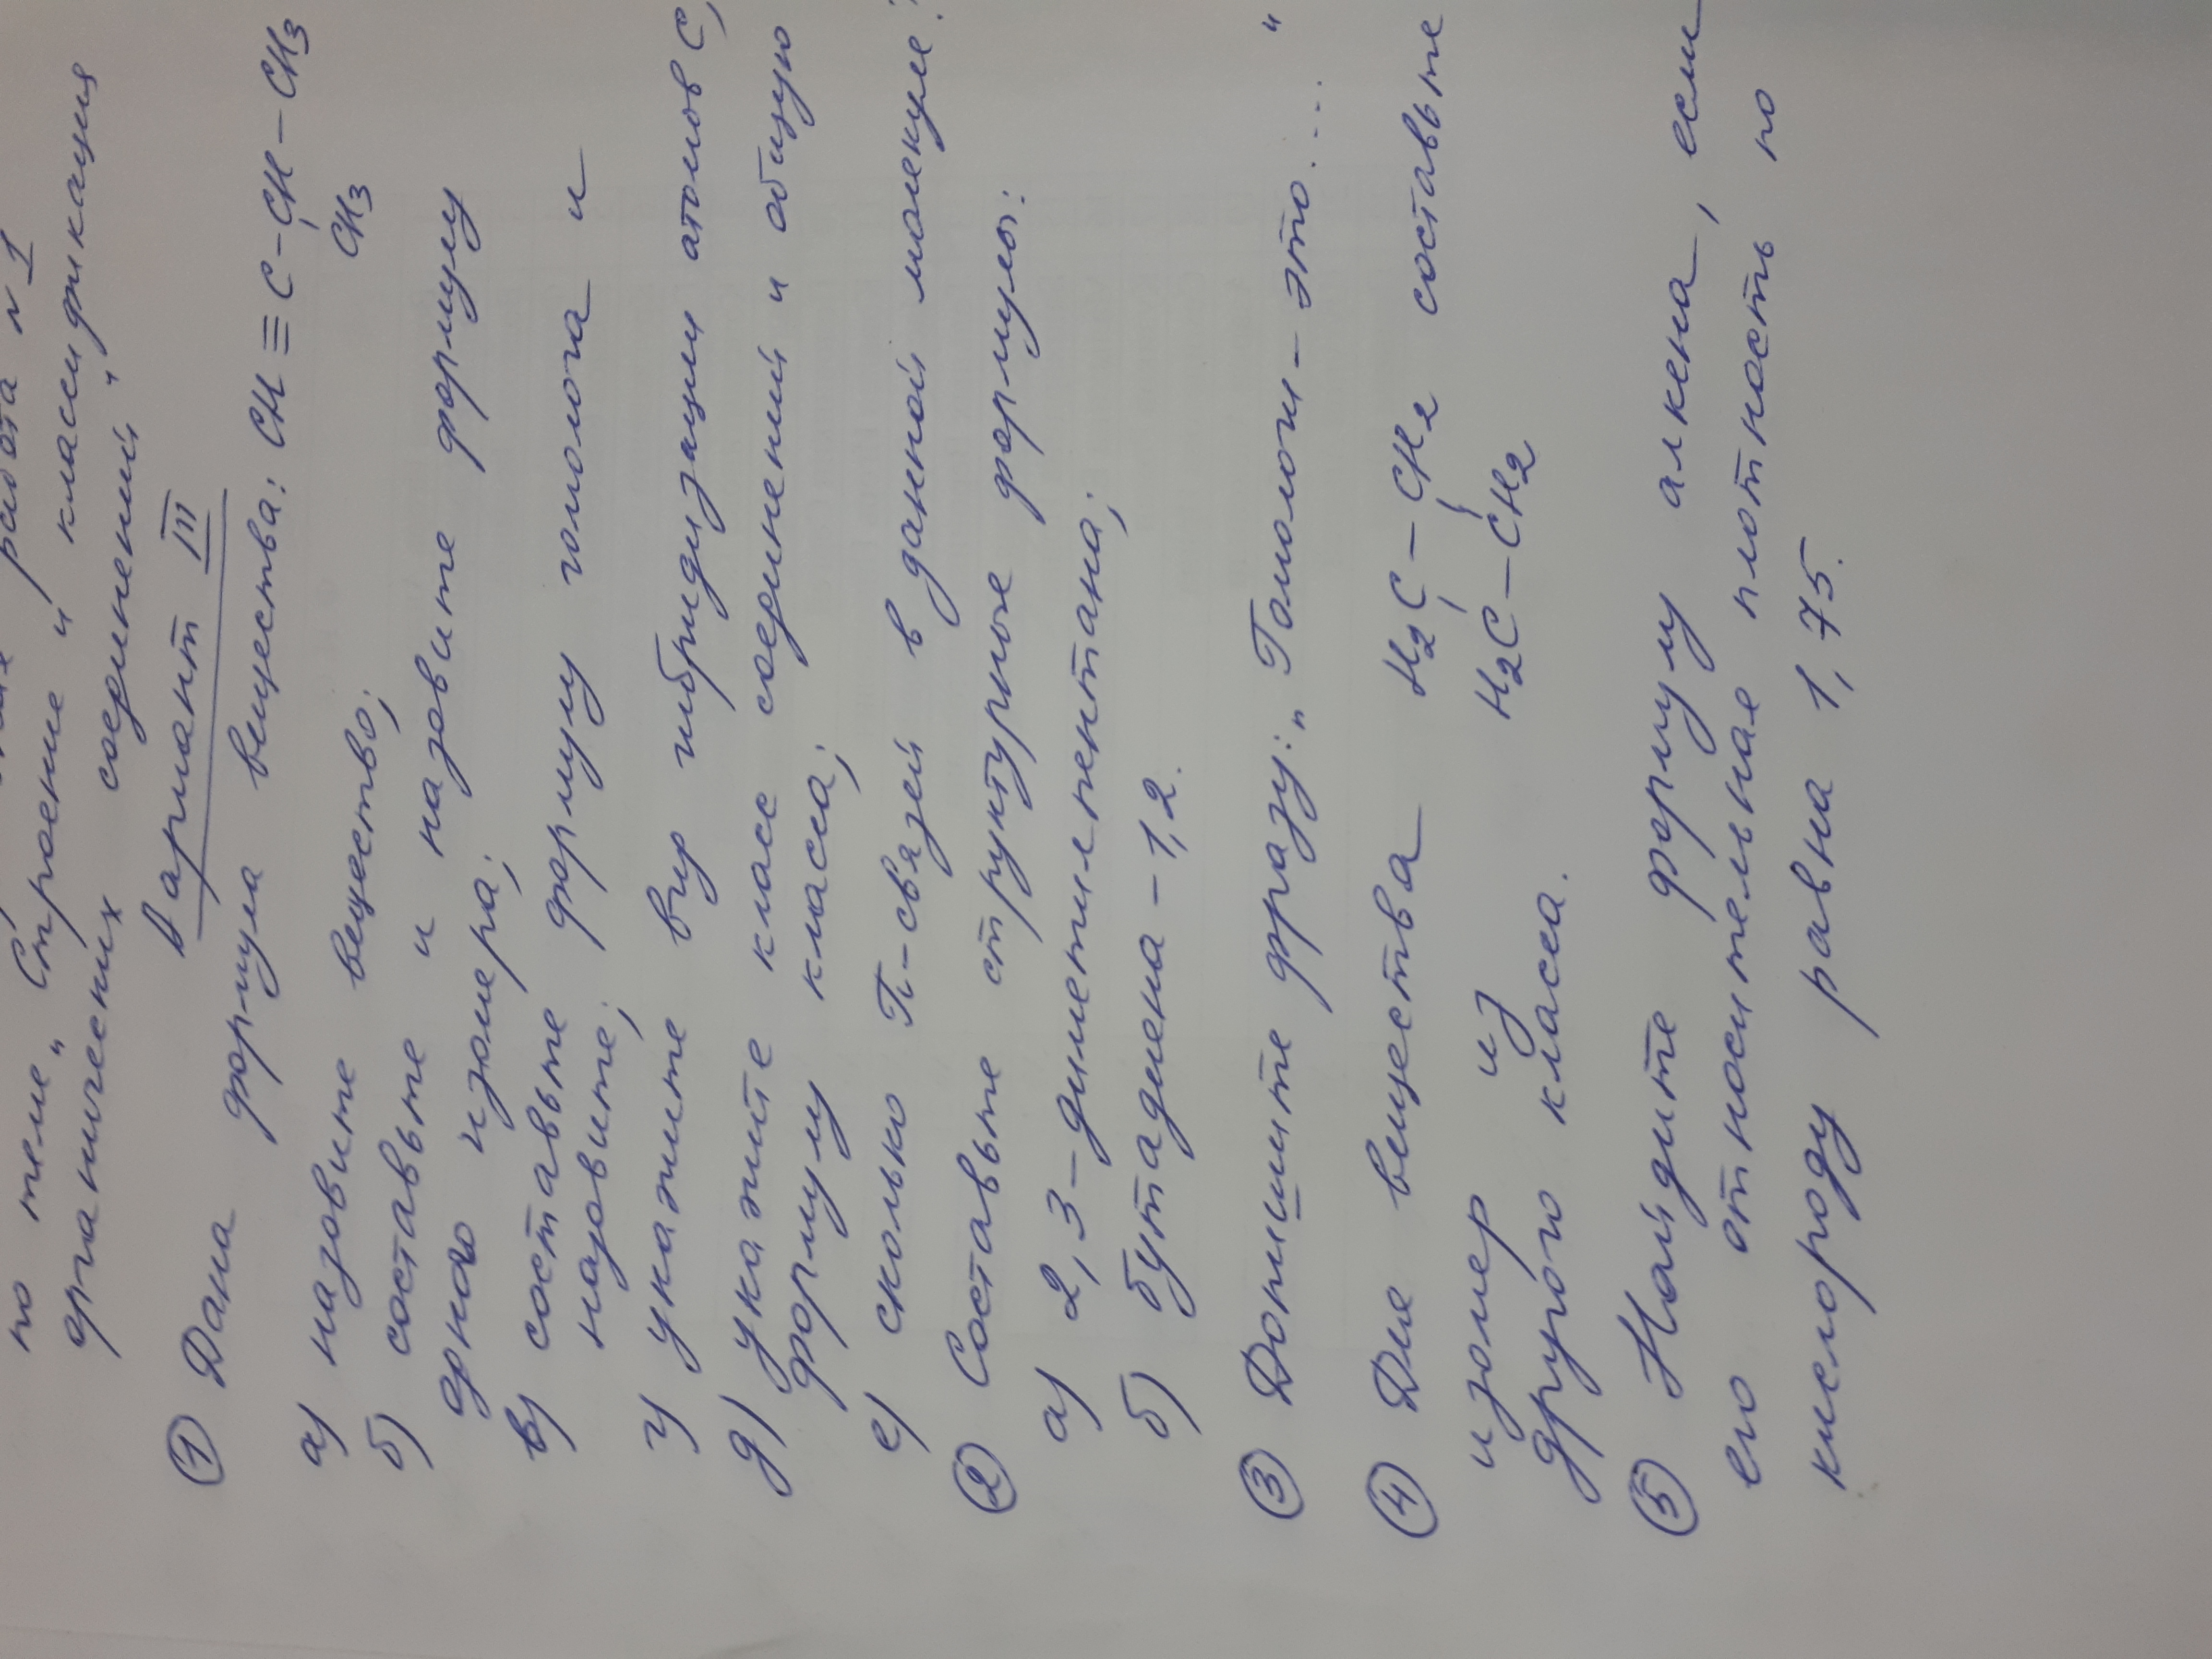 работа № 1
по теме „Строение и классификация
органических соединений"
Вариант III
① Дана формула вещества: CH ≡ C – CH – CH3
CH3
а) назовите вещество;
б) составьте и назовите формулу
одного изомера;
в) составьте формулу гомолога и
назовите;
г) укажите вид гибридизации атомов С;
д) укажите класс соединений и общую
формулу класса;
е) сколько π-связей в данной молекуле?
② Составьте структурные формулы:
а) 2,3-диметилпентана;
б) бутадиена-1,2.
③ Допишите фразу: „Гомологи – это....."
④ Для вещества H2C – CH2 составьте
H2C – CH2
изомер из
другого класса.
⑤ Найдите формулу алкена, если
его относительная плотность по
кислороду равна 1,75.